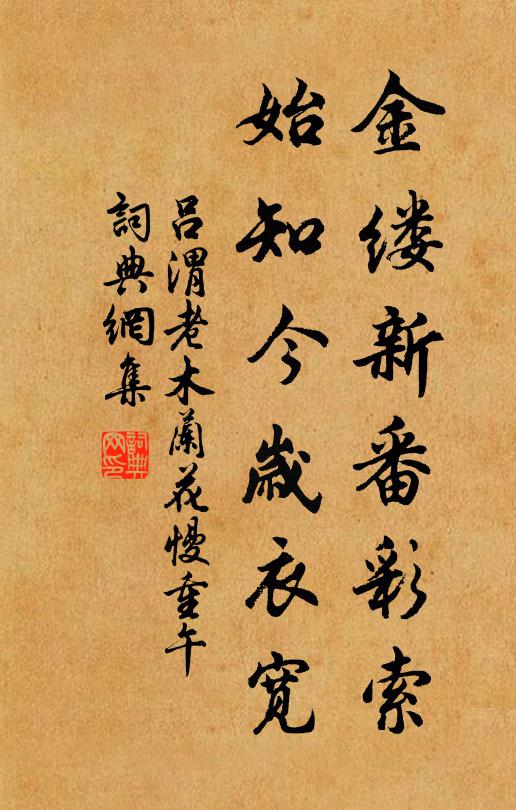 金缕新番彩索
始知今歲衣寬
吕渭老木蘭花慢重午
詞典網集
詞典網印